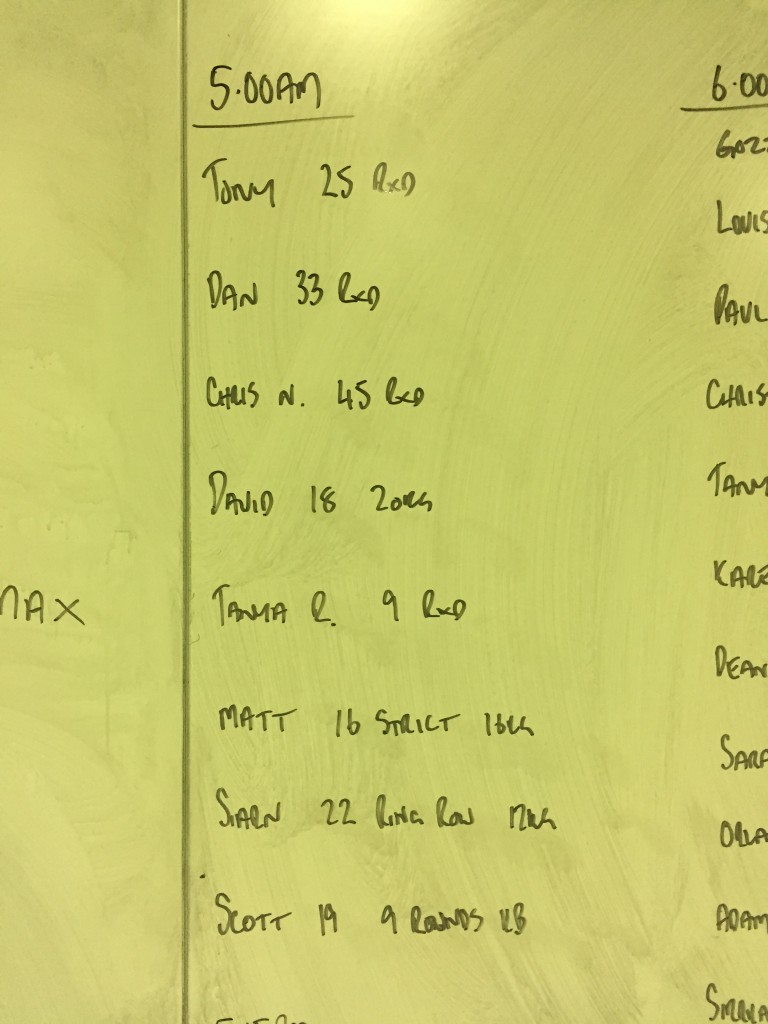 5.00AM
TONY 25 RXD
DAN 33 RXD
CHRIS N. 45 RXD
DAVID 18 20KG
TANYA R. 9 RXD
MATT 16 STRICT 16KG
SIARN 22 RING ROW 12KG
SCOTT 19 9 ROUNDS KB
MAX
6.00
GAZZ
LOUIS
PAUL
CHRIS
TANY
KARE
DEAN
SARA
ORLA
ADAM